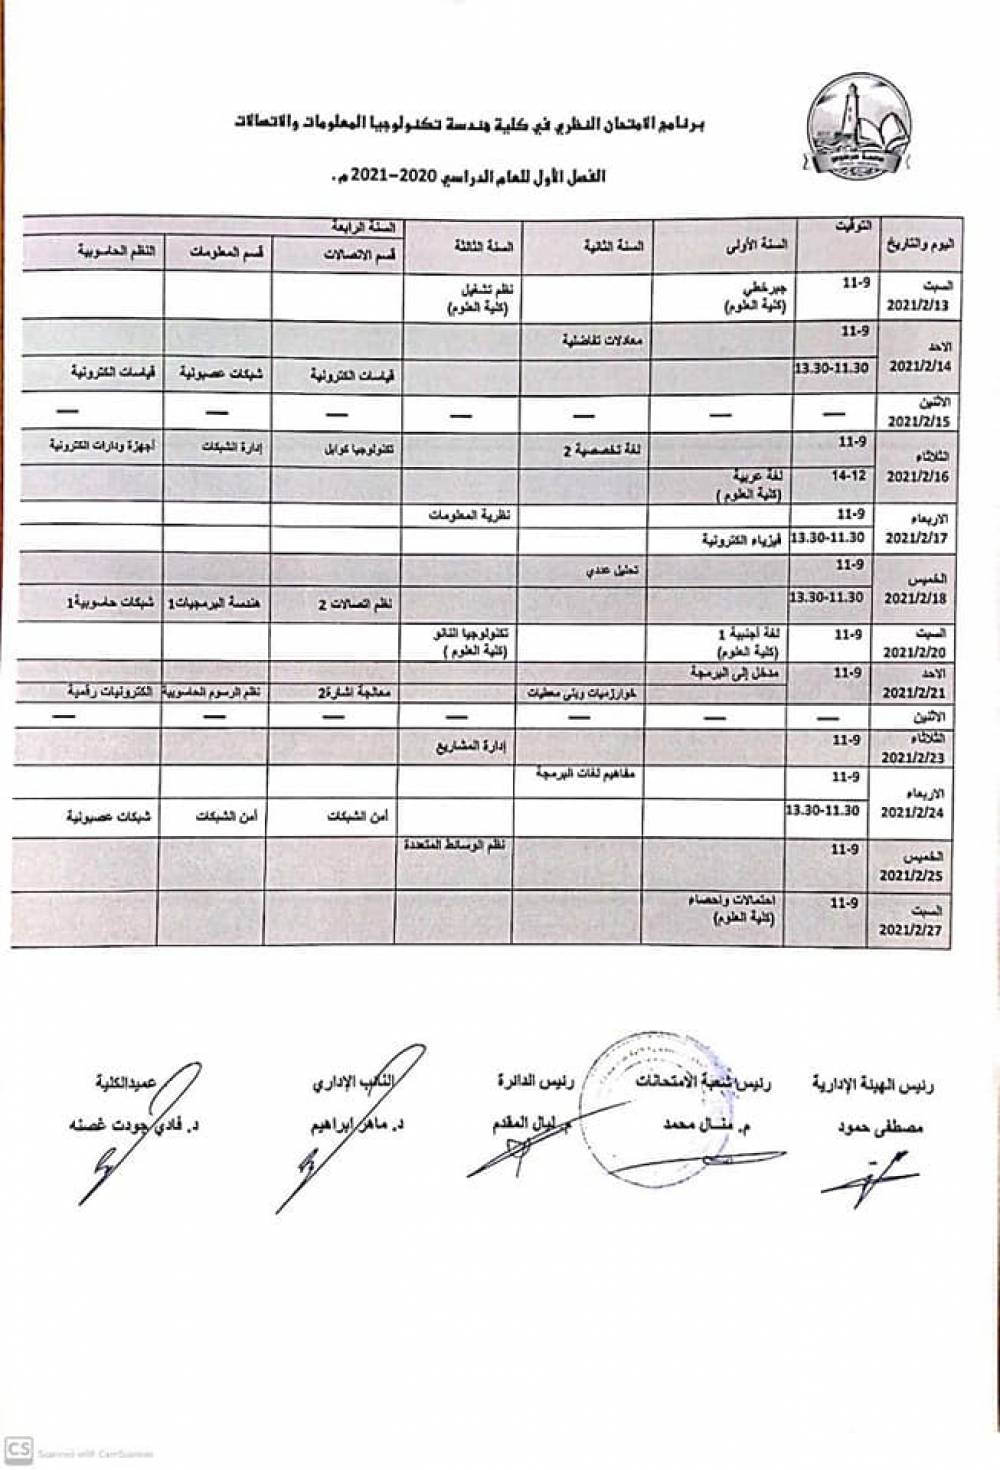 برنامج الامتحان النظري في كلية هندسة تكنولوجيا المعلومات والاتصالات
الفصل الأول للعام الدراسي 2020-2021 م.
اليوم والتاريخ التوقيت السنة الأولى السنة الثانية السنة الثالثة السنة الرابعة
قسم الاتصالات قسم المعلومات النظم الحاسوبية
السبت 2021/2/13 11-9 جبر خطي (كلية العلوم) نظم تشغيل (كلية العلوم)
الاحد 2021/2/14 11-9 معادلات تفاضلية
13.30-11.30 قياسات الكترونية شبكات عصبونية قياسات الكترونية
الاثنين 2021/2/15 — — — — — — —
الثلاثاء 2021/2/16 11-9 لغة تخصصية 2 تكنولوجيا كوابل إدارة الشبكات أجهزة ودارات الكترونية
14-12 لغة عربية (كلية العلوم )
الاربعاء 2021/2/17 11-9 نظرية المعلومات
13.30-11.30 فيزياء الكترونية
الخميس 2021/2/18 11-9 تحليل عددي
13.30-11.30 نظم اتصالات 2 هندسة البرمجيات1 شبكات حاسوبية1
السبت 2021/2/20 11-9 لغة أجنبية 1 (كلية العلوم) تكنولوجيا النانو (كلية العلوم )
الاحد 2021/2/21 11-9 مدخل إلى البرمجة خوارزميات وبنى معطيات معالجة اشارة2 نظم الرسوم الحاسوبية الكترونيات رقمية
الاثنين — — — — — — —
الثلاثاء 2021/2/23 11-9 إدارة المشاريع
الاربعاء 2021/2/24 11-9 مفاهيم لغات البرمجة
13.30-11.30 أمن الشبكات أمن الشبكات شبكات عصبونية
الخميس 2021/2/25 11-9 نظم الوسائط المتعددة
السبت 2021/2/27 11-9 احتمالات واحصاء (كلية العلوم)
رئيس الهيئة الإدارية رئيس شعبة الامتحانات رئيس الدائرة النائب الإداري عميدالكلية
مصطفى حمود م. منال محمد م. ليال المقدم د. ماهر ابراهيم د. فادي جودت غصنه
CS Scanned with CamScanner